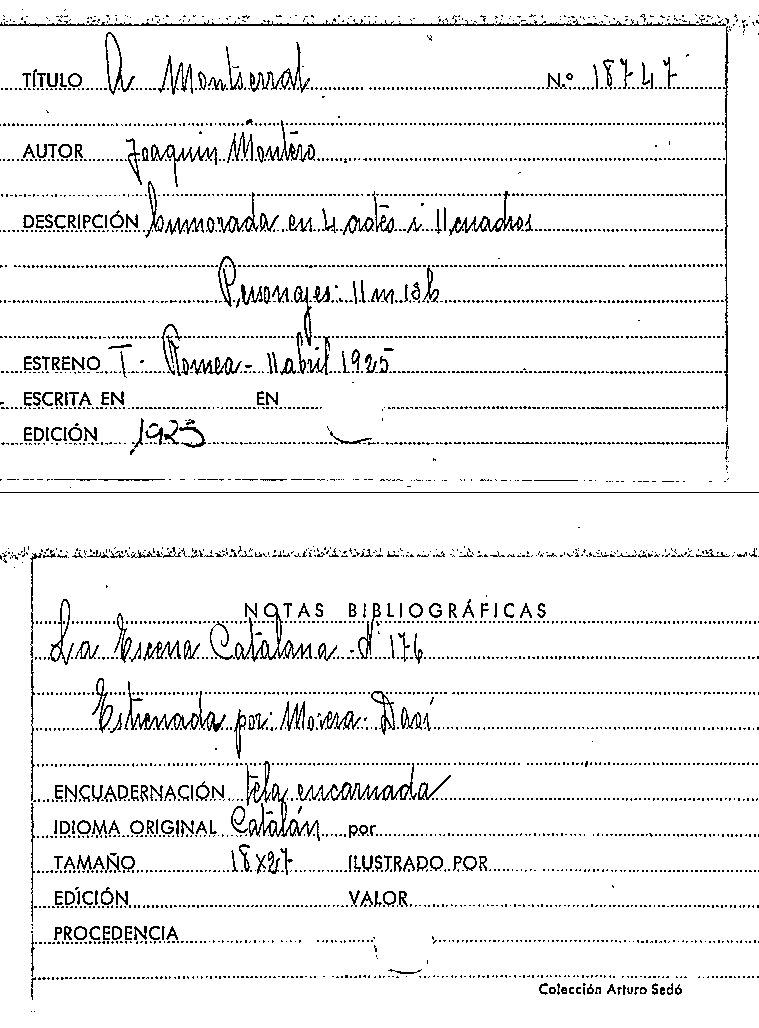 TÍTULO A Montserrat N.º 18747
AUTOR Joaquin Montero
DESCRIPCIÓN humorada en 4 actes i 11 cuadros
Personajes: 11 m 13 h
ESTRENO T. Romea - 11 abril 1925
ESCRITA EN EN
EDICIÓN 1925
NOTAS BIBLIOGRÁFICAS
La Escena Catalana - Nº 176
Estrenada por: Morera - Daví
ENCUADERNACIÓN tela encarnada
IDIOMA ORIGINAL Catalán por
TAMAÑO 18x27 ILUSTRADO POR
EDICIÓN VALOR
PROCEDENCIA
Colección Arturo Sedó